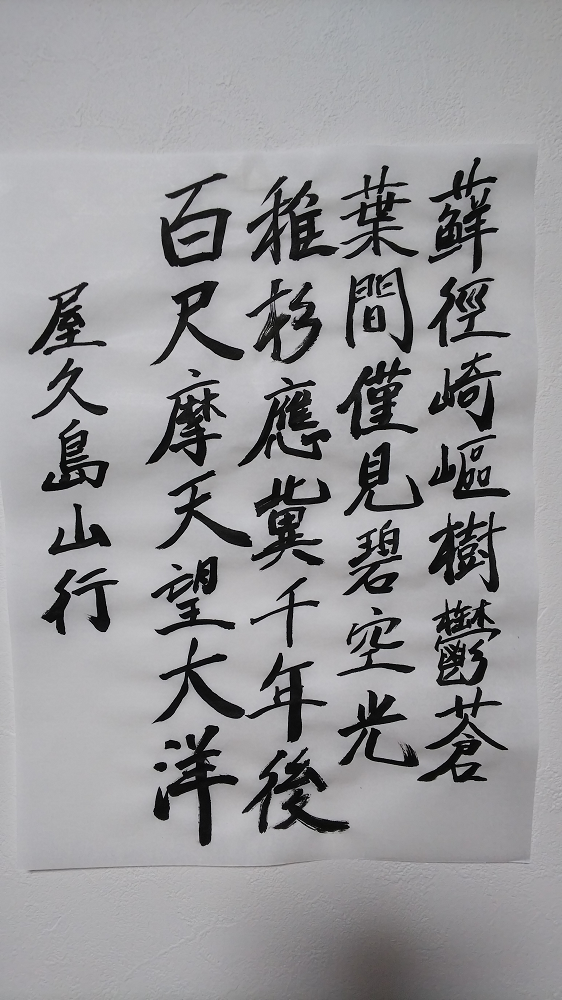 蘚徑崎嶇樹鬱蒼
葉間僅見碧空光
稚杉應冀千年後
百尺摩天望大洋
屋久島山行